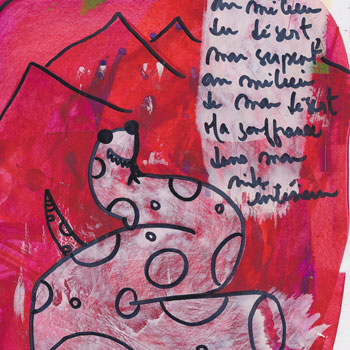 au milieu
du désert
mon serpent
au milieu
de mon désert
Ma souffrance
dans mon
intérieur